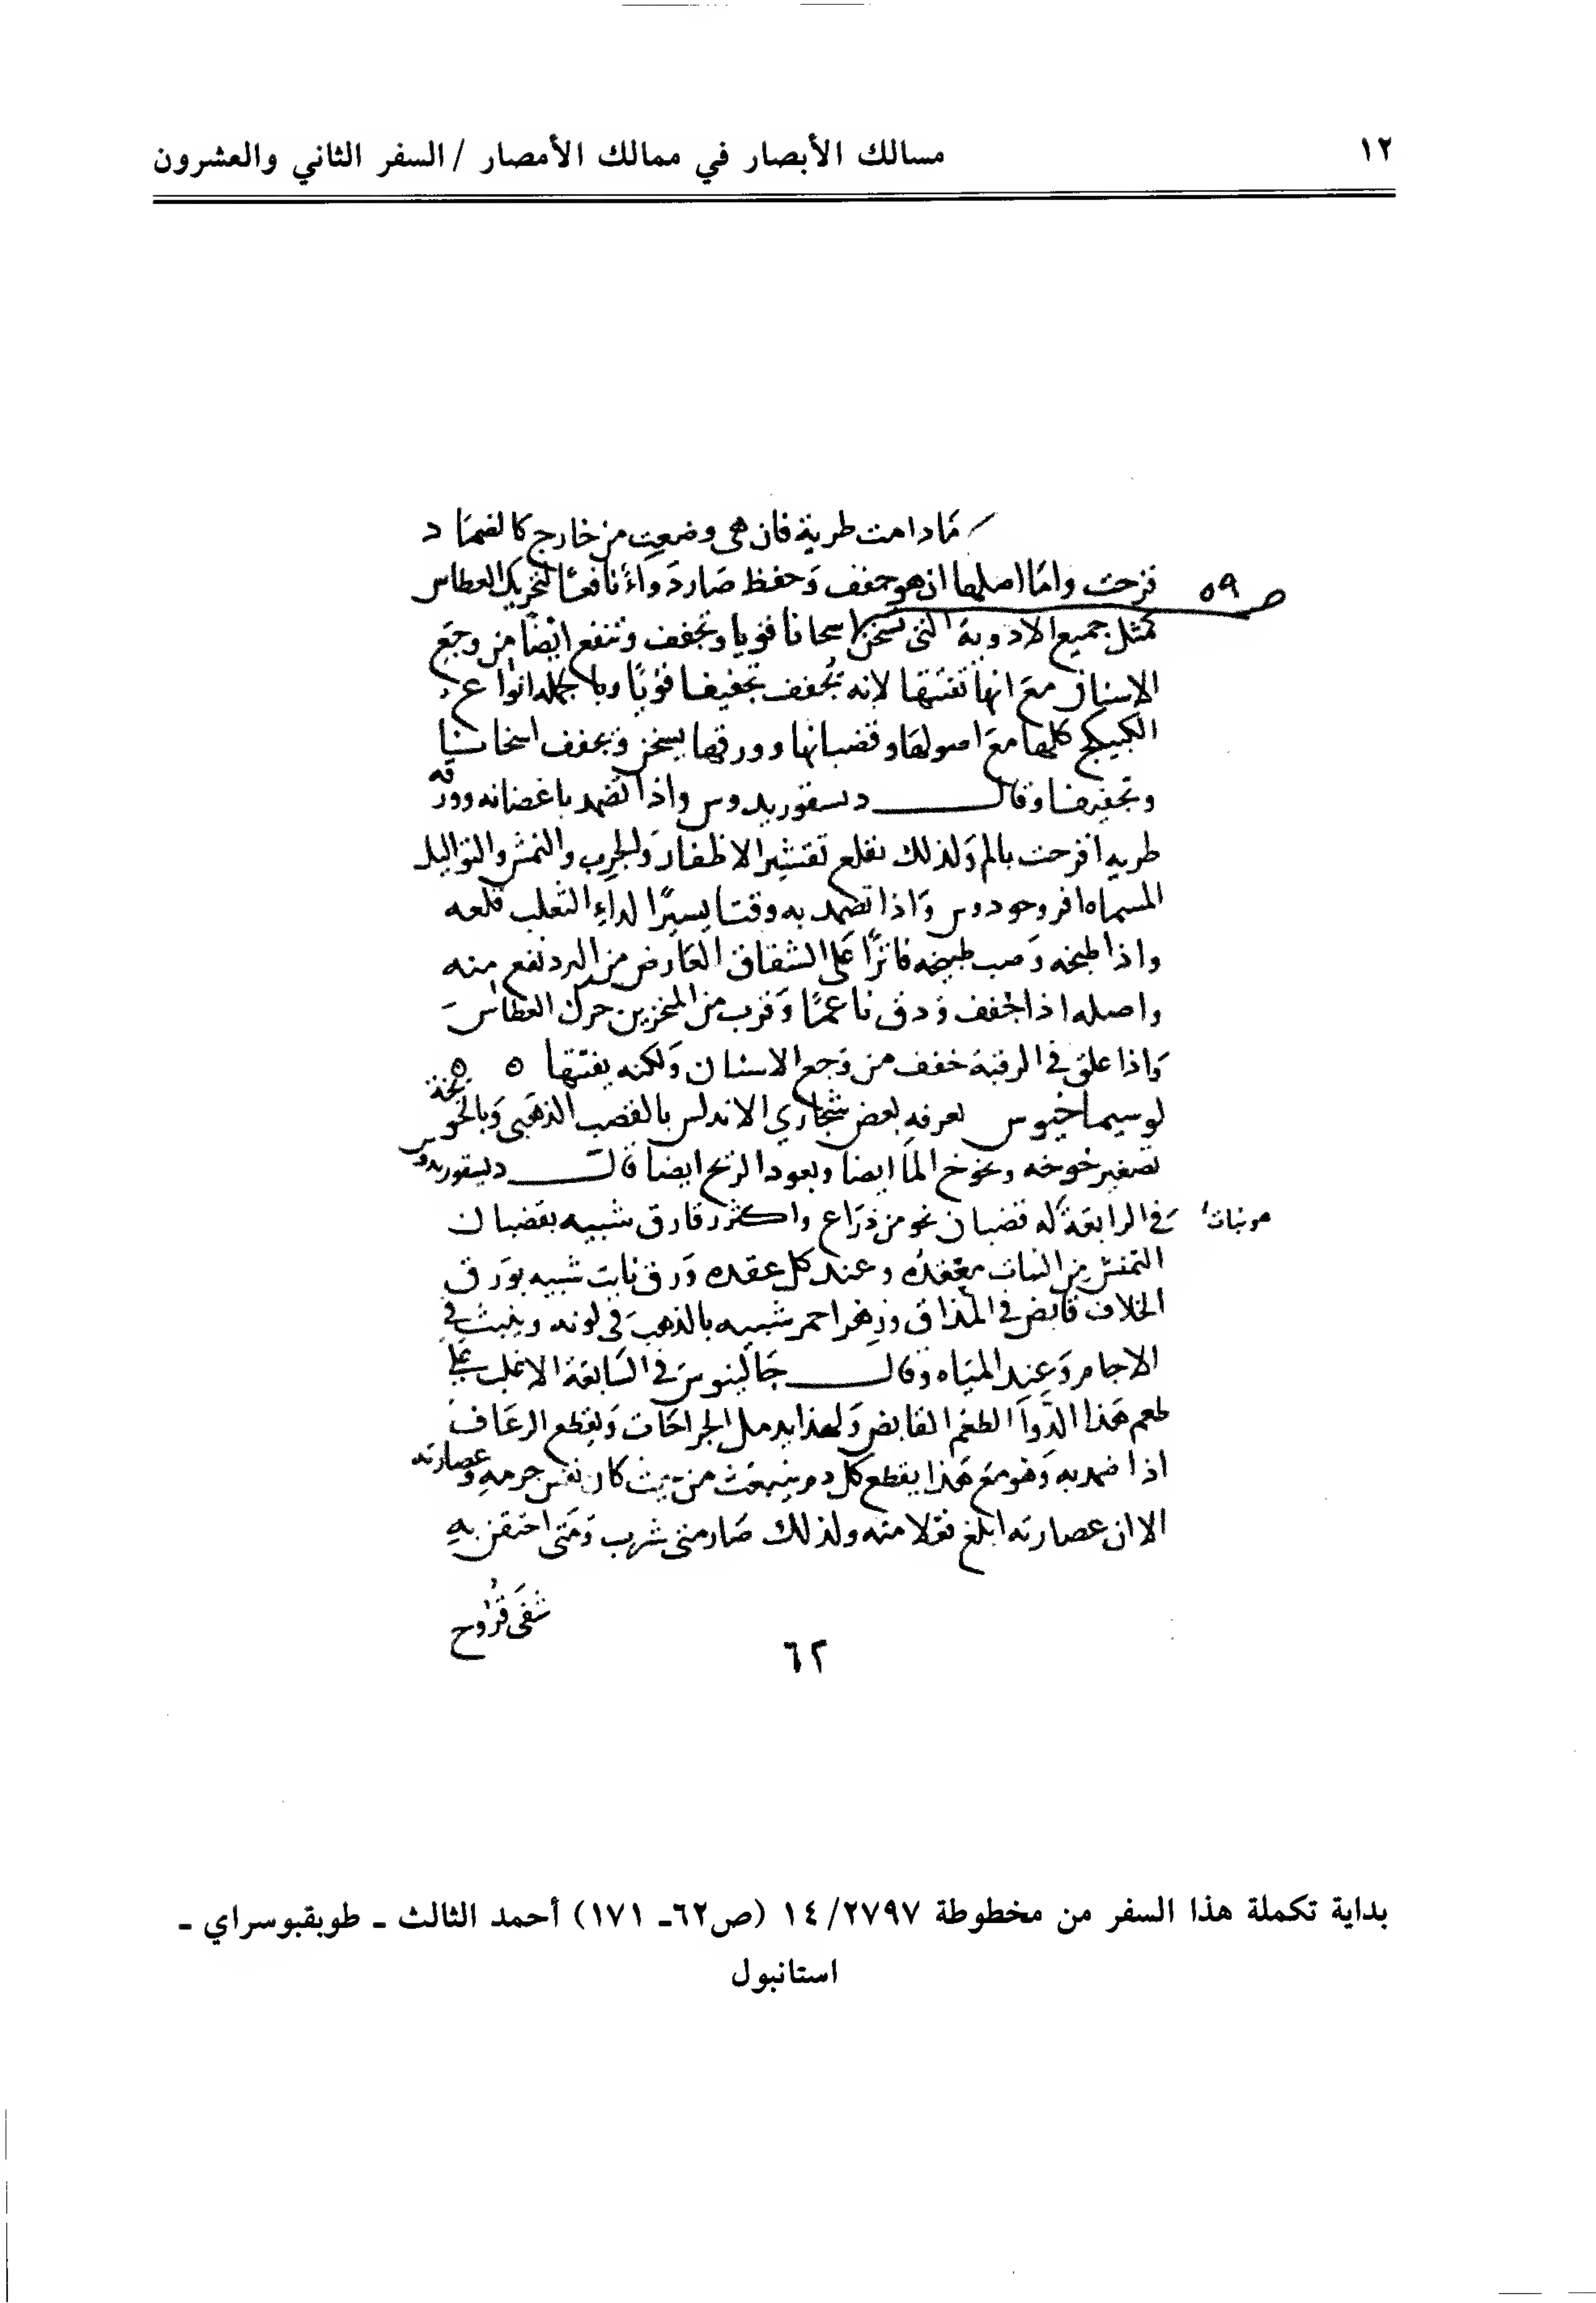 ١٢
مسالك الأبصار في ممالك الأمصار / السفر الثاني والعشرون
مادامت طرية فان هى وضعت من خارج كالضماد
ص ٥٩
قرحت واما اصلها ان هو جفف وحفظ صار دواء نافعا لتحريك العطاس
كمثل جميع الادوية التى تسخن اسخانا قويا وتجفف وتنفع ايضا من وجع
الاسنان مع انها تفتتها لانه تجفف تجفيفا قويا وبالجمله انواع
الكبيكج كلها مع اصولها وقضبانها وورقها يسخن ويجفف اسخانا
وتجفيفا وقال ديسقوريدوس واذا تضمد باغصانه وورقه
طريه اقرحت بالم ولذلك تقلع تقشير الاظفار والجرب والنمش والثواليل
المسماه واذا تضمد به وقتا يسيرا لداء الثعلب قلعه
واذا طبخه وصب طبيخه فاترا على الشقاق العارض من البرد نفع منه
واصله اذا جفف ودق ناعما وقرب من المنخرين حرك العطاس
واذا علق في الرقبة خفف من وجع الاسنان ولكنه يفتتها ٥ ٥
لوسيماخيوس يعرفه بعض شجاري الاندلس بالقصب الذهبى وبالخويخة
تصغير خوخه وبخوخ الما ايضا وبعود الريح ايضا قال ديسقوريدوس
هو نبات
في الرابعة له قضبان نحو من ذراع واكثر رقاق شبيه بقضبان
التمنش من النبات معقده وعند كل عقده ورق نابت شبيه بورق
الخلاف قابض في المذاق وزهر احمر شبيه بالذهب في لونه وينبت في
الاجام وعند المياه وقال جالينوس في السابعة الاغلب على
طعم هذا الدوا الطعم القابض ولهذا يدمل الجراحات ويقطع الرعاف
اذا ضمد به وهو مع هذا يقطع كل دم ينبعث من حيث كان نفس جرمه وعصارته
الا ان عصارته ابلغ فعلا منه ولذلك صار متى شرب ومتى احتقن به
شفى قروح
٦٢
بداية تكملة هذا السفر من مخطوطة ٢٧٩٧/ ١٤ (ص٦٢ـ ١٧١) أحمد الثالث ـ طوبقبوسراي ـ
استانبول